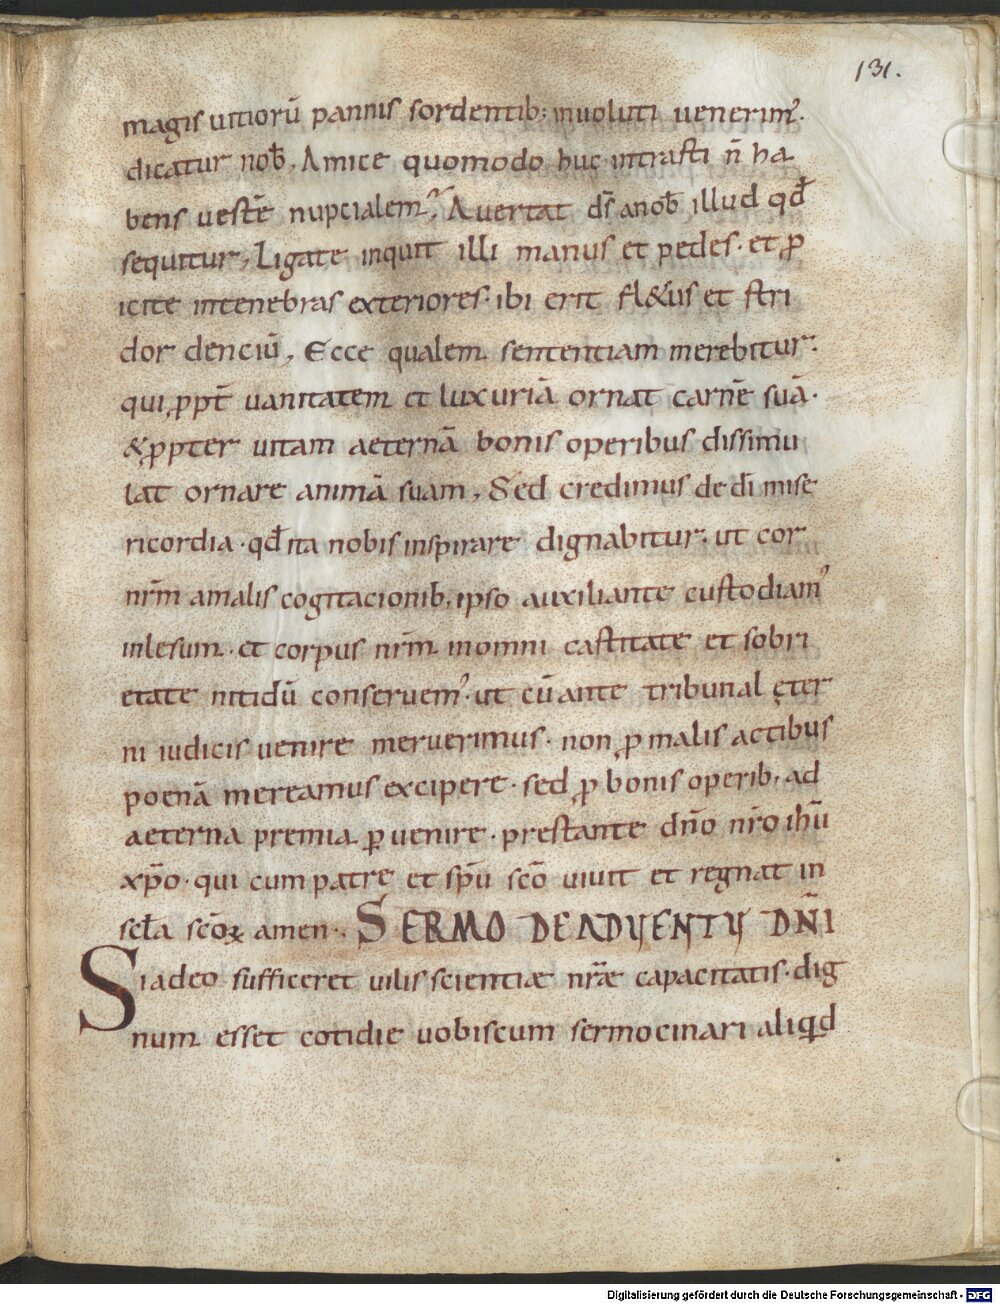 131.
magis uitiorū pannis sordentib; inuoluti uenerim᾽.
dicatur nob̄, Amice quomodo huc intrasti n̄ ha
bens uestē nupcialem; Auertat d̄s a nob̄ illud qđ
sequitur, Ligate inquit illi manus et pedes · et ꝓ
icite in tenebras exteriores · ibi erit fl&us et stri
dor denciū, Ecce qualem sententiam merebitur ·
qui ꝓpt̄ uanitatem et luxuriā ornat carnē suā ·
& ꝓpter uitam aeternā bonis operibus dissimu
lat ornare animā suam, Sed credimus de dī mise
ricordia · qđ ita nobis inspirare dignabitur · ut cor
nr̄m a malis cogitacionib; ipso auxiliante custodiam᾽
inlesum · et corpus nr̄m in omni castitate et sobri
etate nitidū conseruem᾽ · ut cū ante tribunal ęter
ni iudicis uenire meruerimus · non ꝓ malis actibus
poenā mereamus excipere · sed ꝓ bonis operib; ad
aeterna premia ꝑuenire · prestante dn̄o nr̄o ihū
xp̄o · qui cum patre et sp̄u sc̄o uiuit et regnat in
scl̄a sc̄oꝝ amen · SERMO DE ADUENTU DN̄I
Si adeo sufficeret uilis scientiæ nr̄æ capacitatis · dig
num esset cotidie uobiscum sermocinari aliqđ
Digitalisierung gefördert durch die Deutsche Forschungsgemeinschaft - DFG